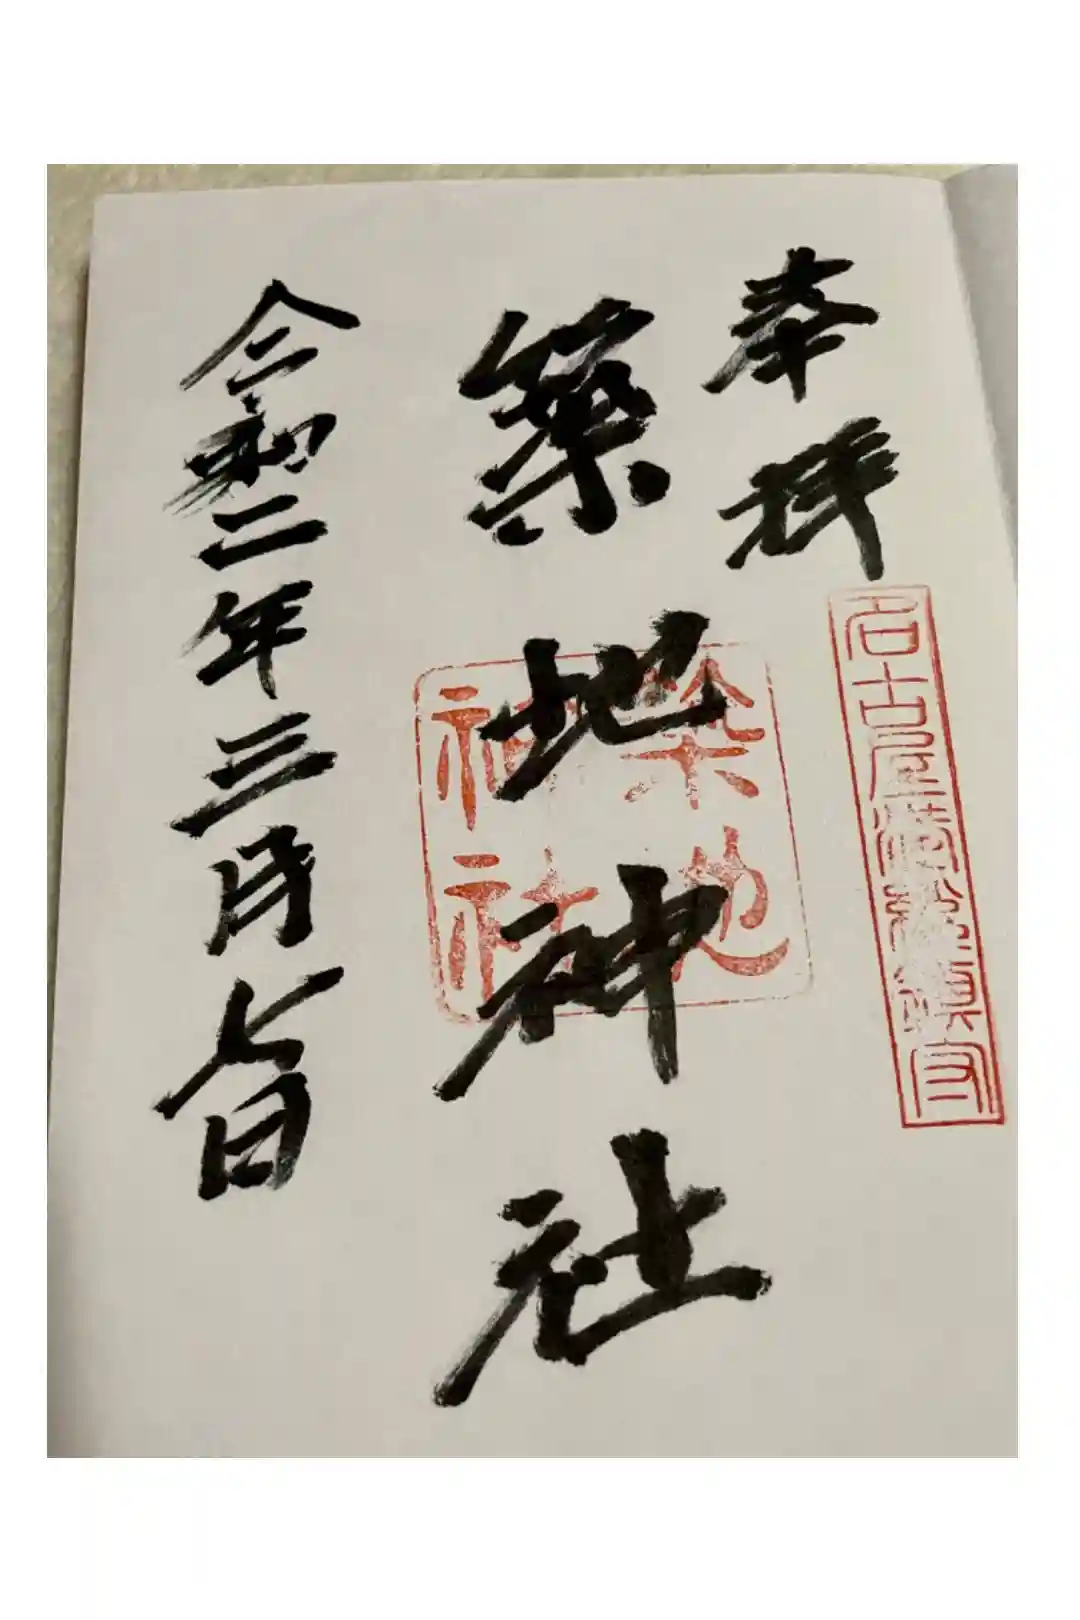 奉拝
名古屋
築地神社
築地
神社
令和二年三月七日